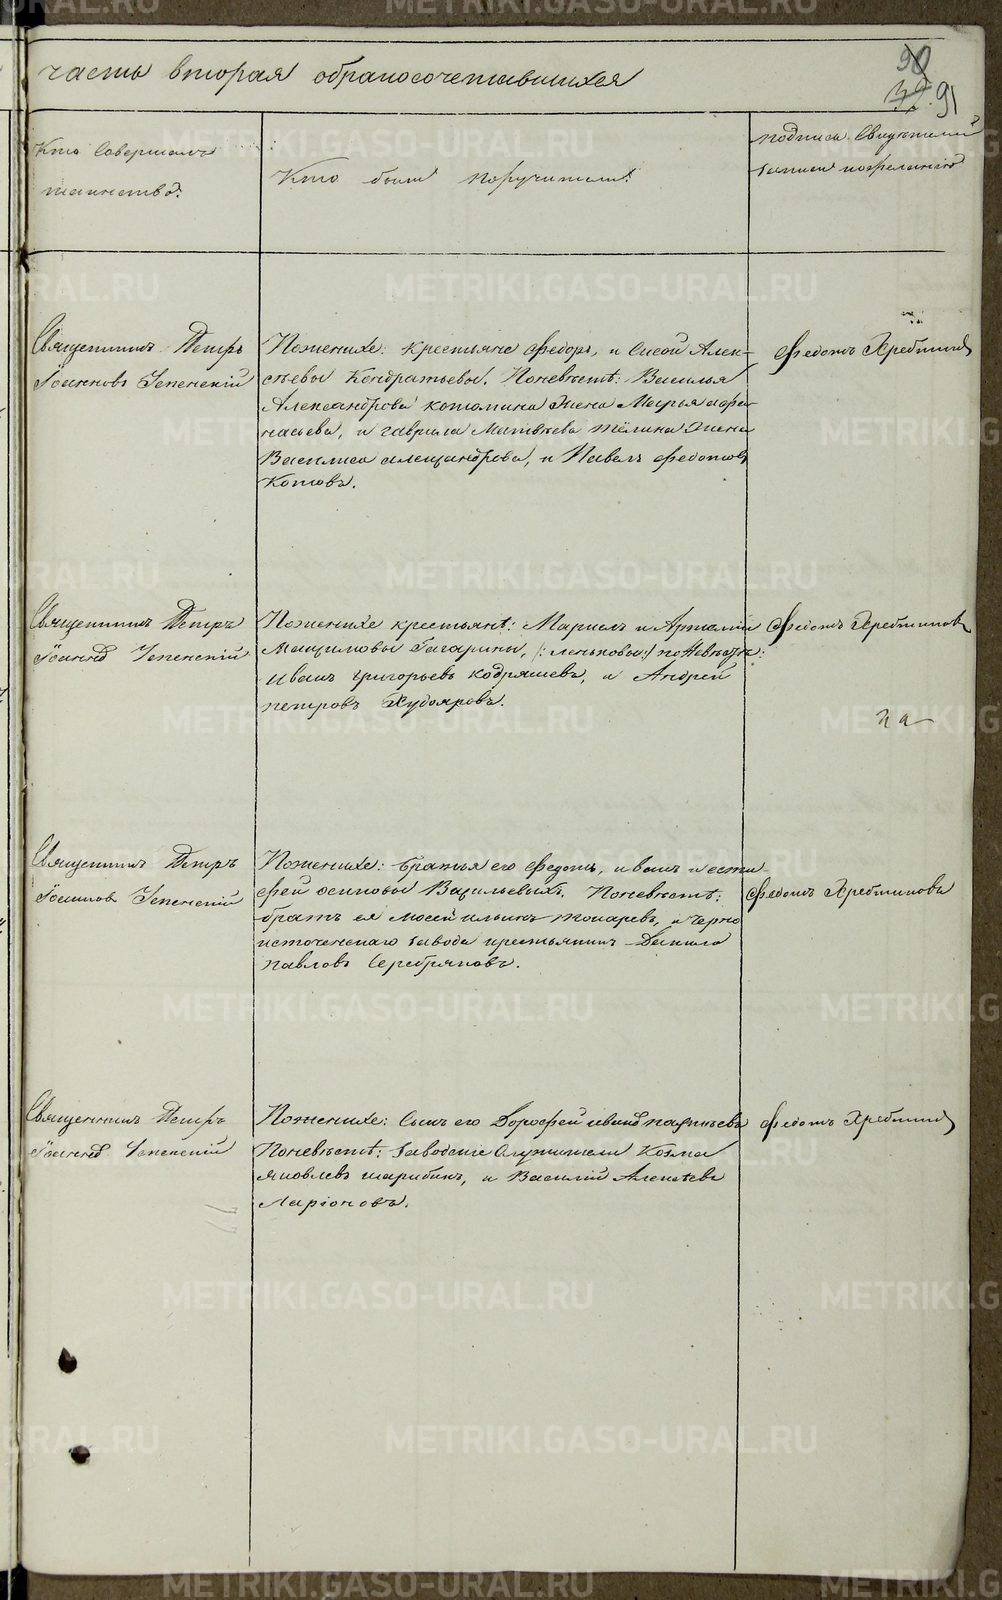 часть вторая о бракосочетавшихся
90
32. 91
Кто совершалъ
таинство.
Кто были поручители.
подписъ свидетелей
записи по желанію
Священникъ Петръ
Іоанновъ Успенскій
Пожениху: крестьяне Федоръ, и Сисой Алек-
сѣевы Кондратьевы. Поневѣстѣ: Василья
Александрова котюмина жена Марья афа-
насьева, и гаврила Матвѣева тёлина жена
Василиса александрова, и Павелъ федотовъ
Котовъ.
Федотъ Хребтиковъ
Священникъ Петръ
Іоанновъ Успенскій
Пожениху крестьянѣ: Маркелъ и Артамій
Мацимовы Гагарины, /: леньковы:/ поневѣстѣ:
Иванъ григорьевъ кодряшевъ, и Андрей
петровъ Худояровъ.
Федотъ Хребтиковъ
Священникъ Петръ
Іоанновъ Успенскій
Пожениху: братья его Федотъ, иванъ и ести-
фей осиповы Васильевыхъ. Поневѣстѣ:
братъ ея Мосей ильинъ токаревъ, и черно
источенскаго завода крестьянинъ Данило
павловъ Серебряковъ.
Федотъ Хребтиковъ
Священникъ Петръ
Іоанновъ Успенскій
Пожениху: Сынъ его Дорофей ивановъ
Поневѣстѣ: заводскіе Служители Козма
яковлевъ шарыбинъ, и Василій Алексѣевъ
Ларіоновъ.
Федотъ Хребтиковъ
METRIKI.GASO-URAL.RU